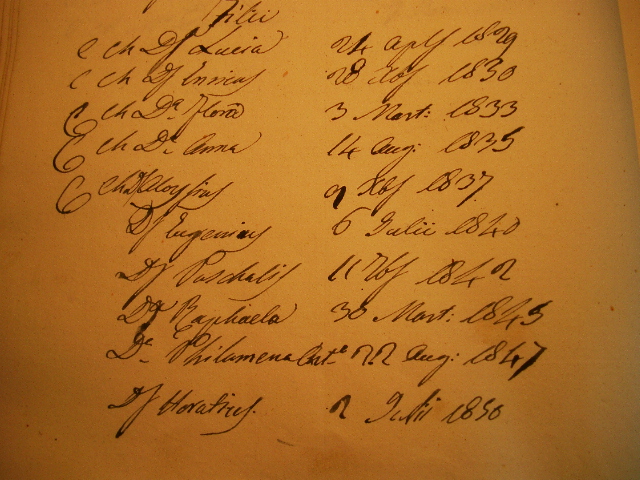 Filii
C Ch Ds Lucia 24 aplis 1829
C Ch Ds Enricus 28 Xbs 1830
C Ch Da Flora 3 Mart: 1833
C Ch Da Anna 14 Aug: 1835
C Ch Ds Aloysius 9 Xbs 1837
Ds Eugenius 6 Julii 1840
Ds Paschalis 11 7bs 1842
Da Raphaela 30 Mart: 1845
Da Philamena 22 Aug: 1847
Ds Horatius. 2 Julii 1850